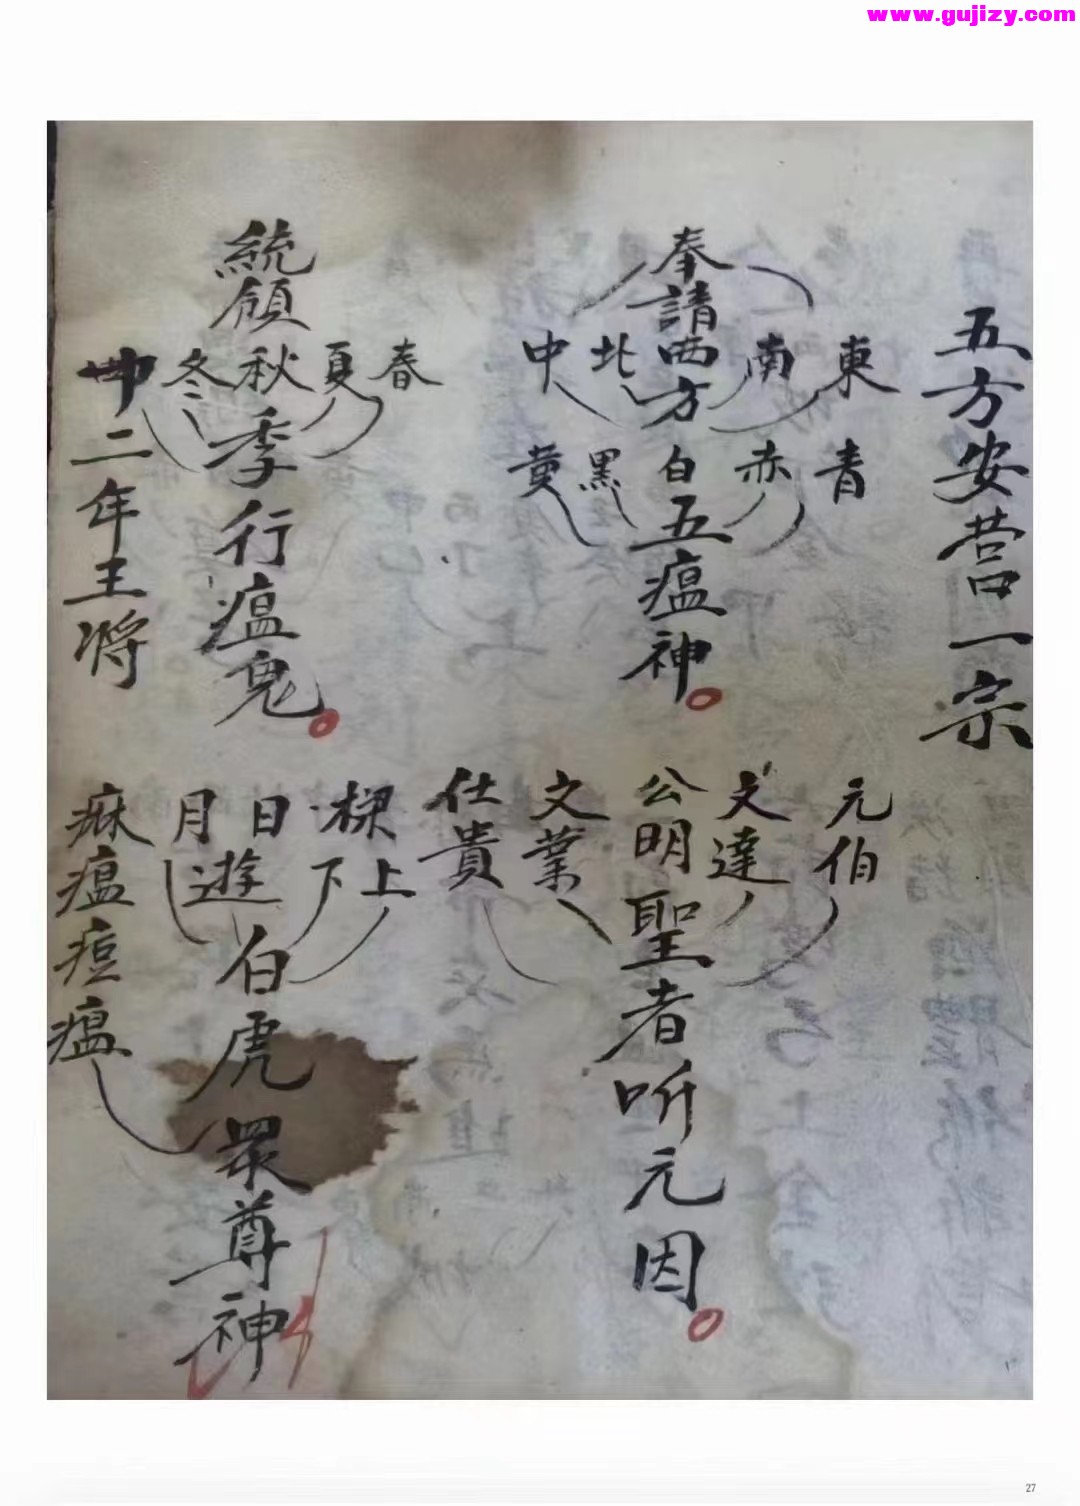 www.gujizy.com
五方安營一宗
東 南 北 中
青 赤 白 黑 黄
奉請西方五瘟神。
元伯 文達 公明 文業 仕貴
聖者听元因。
春 夏 秋 冬
統領季行瘟鬼。
樑上下 日月遊
白虎眾尊神
二年王將
痳瘟痘瘟
27